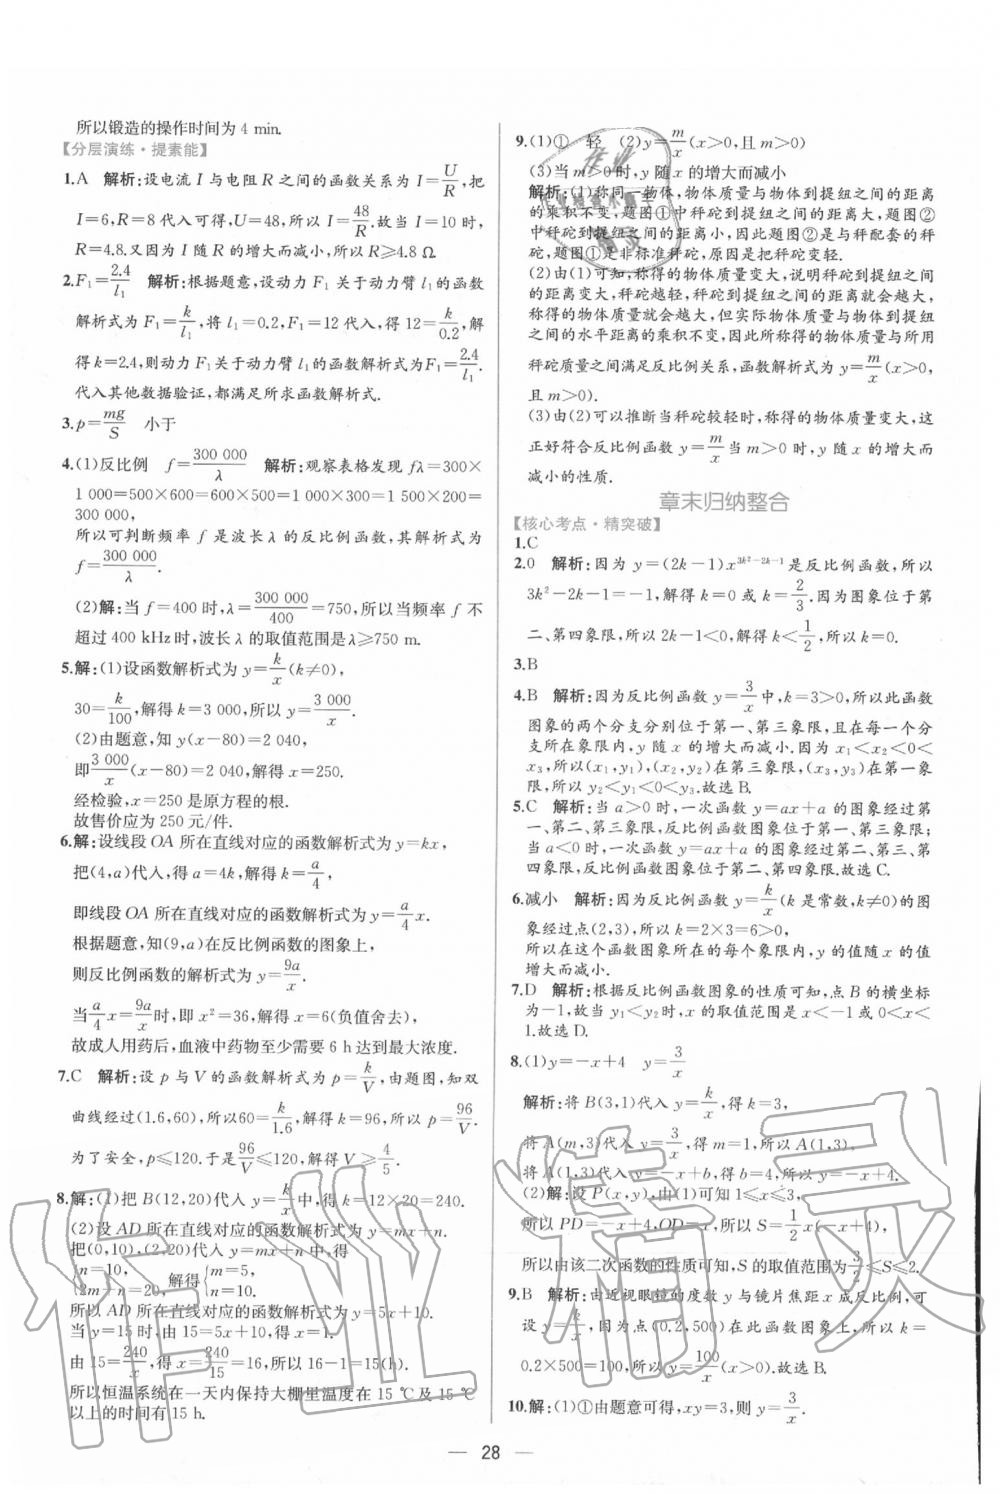 所以锻造的操作时间为 4 min.
【分层演练·提素能】
1.A 解析:设电流 I 与电阻 R 之间的函数关系为 I=U/R,把
I=6,R=8代入可得,U=48,所以 I=48/R.故当 I=10 时,
R=4.8.又因为 I 随 R 的增大而减小,所以 R≥4.8 Ω.
2.F₁=2.4/l₁ 解析:根据题意,设动力 F₁ 关于动力臂 l₁的函数
解析式为 F₁=k/l₁,将 l₁=0.2,F₁=12代入,得12=k/0.2,解
得 k=2.4,则动力 F₁关于动力臂 l₁的函数解析式为F₁=2.4/l₁.
代入其他数据验证,都满足所求函数解析式.
3.p=mg/S 小于
4.(1)反比例 f=300 000/λ 解析:观察表格发现 fλ=300×
1 000=500×600=600×500=1 000×300=1 500×200=
300 000,
所以可判断频率 f 是波长 λ 的反比例函数,其解析式为
f=300 000/λ.
(2)解:当 f=400 时,λ=300 000/400=750,所以当频率 f 不
超过 400 kHz时,波长 λ 的取值范围是 λ≥750 m.
5.解:(1)设函数解析式为 y=k/x(k≠0),
30=k/100,解得 k=3 000,所以 y=3 000/x.
(2)由题意,知 y(x-80)=2 040,
即3 000/x(x-80)=2 040,解得 x=250.
经检验,x=250 是原方程的根.
故售价应为 250 元/件.
6.解:设线段 OA 所在直线对应的函数解析式为 y=kx,
把(4,a)代入,得 a=4k,解得 k=a/4,
即线段 OA 所在直线对应的函数解析式为 y=a/4x.
根据题意,知(9,a)在反比例函数的图象上,
则反比例函数的解析式为 y=9a/x.
当a/4x=9a/x时,即 x²=36,解得 x=6(负值舍去),
故成人用药后,血液中药物至少需要 6 h达到最大浓度.
7.C 解析:设 p 与 V 的函数解析式为 p=k/V,由题图,知双
曲线经过(1.6,60),所以60=k/1.6,解得 k=96,所以 p=96/V.
为了安全,p≤120.于是96/V≤120,解得 V≥4/5.
8.解:(1)把 B(12,20)代入 y=k/x中,得 k=12×20=240.
(2)设 AD 所在直线对应的函数解析式为 y=mx+n.
把(0,10),(2,20)代入 y=mx+n 中,得
{n=10, 2m+n=20, 解得{m=5, n=10.
所以 AD 所在直线对应的函数解析式为 y=5x+10.
当 y=15时,由 15=5x+10,得 x=1.
由 15=240/x,得 x=240/15=16,所以 16-1=15(h).
所以恒温系统在一天内保持大棚里温度在 15 ℃及 15 ℃
以上的时间有15 h.
9.(1)① 轻 (2)y=m/x(x>0,且 m>0)
(3)当 m>0时,y 随 x 的增大而减小
解析:(1)称同一物体,物体质量与物体到提纽之间的距离
的乘积不变,题图①中秤砣到提纽之间的距离大,题图②
中秤砣到提纽之间的距离小,因此题图②中是与秤配套的秤
砣,题图①是非标准秤砣,原因是把秤砣变轻.
(2)由(1)可知,称得的物体质量变大,说明秤砣到提纽之间
的距离变大,秤砣越轻,秤砣到提纽之间的距离就会越大,
称得的物体质量就会越大,但实际物体质量与物体到提纽
之间的水平距离的乘积不变,因此所称得的物体质量与所用
秤砣质量满足反比例关系,函数解析式为 y=m/x(x>0,
且 m>0).
(3)由(2)可以推断当秤砣较轻时,称得的物体质量变大,这
正好符合反比例函数 y=m/x当 m>0时,y 随 x 的增大而
减小的性质.
章末归纳整合
【核心考点·精突破】
1.C
2.0 解析:因为 y=(2k-1)x^(3k²-2k-1)是反比例函数,所以
3k²-2k-1=-1,解得 k=0或 k=2/3.因为图象位于第
二、第四象限,所以 2k-1<0,解得 k<1/2,所以 k=0.
3.B
4.B 解析:因为反比例函数 y=3/x中,k=3>0,所以此函数
图象的两个分支分别位于第一、第三象限,且在每一个分
支所在象限内,y 随 x 的增大而减小.因为 x₁<x₂<0<
x₃,所以(x₁,y₁),(x₂,y₂)在第三象限,(x₃,y₃)在第一象
限,所以 y₂<y₁<0<y₃.故选 B.
5.C 解析:当 a>0时,一次函数 y=ax+a 的图象经过第
一、第二、第三象限,反比例函数图象位于第一、第三象限;
当 a<0时,一次函数 y=ax+a 的图象经过第二、第三、第
四象限,反比例函数图象位于第二、第四象限.故选C.
6.减小 解析:因为反比例函数 y=k/x(k 是常数,k≠0)的图
象经过点(2,3),所以 k=2×3=6>0,
所以在这个函数图象所在的每个象限内,y 的值随 x 的值
增大而减小.
7.D 解析:根据反比例函数图象的性质可知,点 B 的横坐标
为-1,故当 y₁<y₂时,x 的取值范围是 x<-1 或 0<x<
1.故选 D.
8.(1)y=-x+4 y=3/x
解析:将 B(3,1)代入 y=k/x,得 k=3,
将 A(m,3)代入 y=3/x,得 m=1,所以 A(1,3).
将 A(1,3)代入 y=-x+b,得 b=4,所以 y=-x+4.
(2)解:设 P(x,y),由(1)可知 1≤x≤3,
所以 PD=-x+4,OD=x,所以 S=1/2x(-x+4),
所以由该二次函数的性质可知,S 的取值范围为3/2≤S≤2.
9.B 解析:由近视眼镜的度数 y 与镜片焦距 x 成反比例,可
设 y=k/x,由点(0.2,500)在此函数图象上,所以 k=
0.2×500=100,所以 y=100/x.故选 B.
10.解:(1)①由题意可得,xy=3,则 y=3/x.
— 28 —
作业精灵